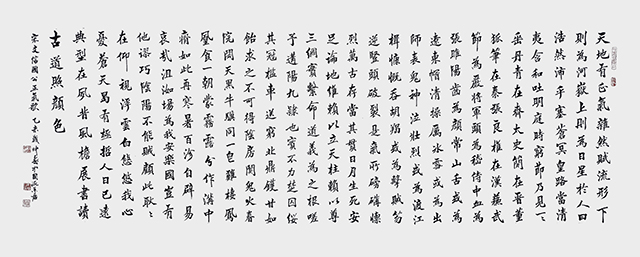 天地有正氣雜然賦流形下
則為河嶽上則為日星於人曰
浩然沛乎塞蒼冥皇路當清
夷含和吐明庭時窮節乃見一一
垂丹青在齊太史簡在晉董
狐筆在秦張良椎在漢蘇武
節為嚴將軍頭為嵇侍中血為
張睢陽齒為顏常山舌或為
遼東帽清操厲冰雪或為出
師表鬼神泣壯烈或為渡江
楫慷慨吞胡羯或為擊賊笏
逆豎頭破裂是氣所磅礴凜
烈萬古存當其貫日月生死安
足論地維賴以立天柱賴以尊
三綱實繫命道義為之根嗟
予遘陽九隸也實不力楚囚纓
其冠車送窮北鼎鑊甘如
飴求之不可得陰房闃鬼火春
院閟天黑牛驥同一皂雞棲鳳
凰食一朝蒙霧露分作溝中
瘠如此再寒暑百沴自辟易
哀哉沮洳場為我安樂國豈有
他謬巧陰陽不能賊顧此耿耿
在仰視浮雲白悠悠我心
憂蒼天曷有極哲人日已遠
典型在夙昔風檐展書讀
古道照顏色
宋文信國公正氣歌 乙未